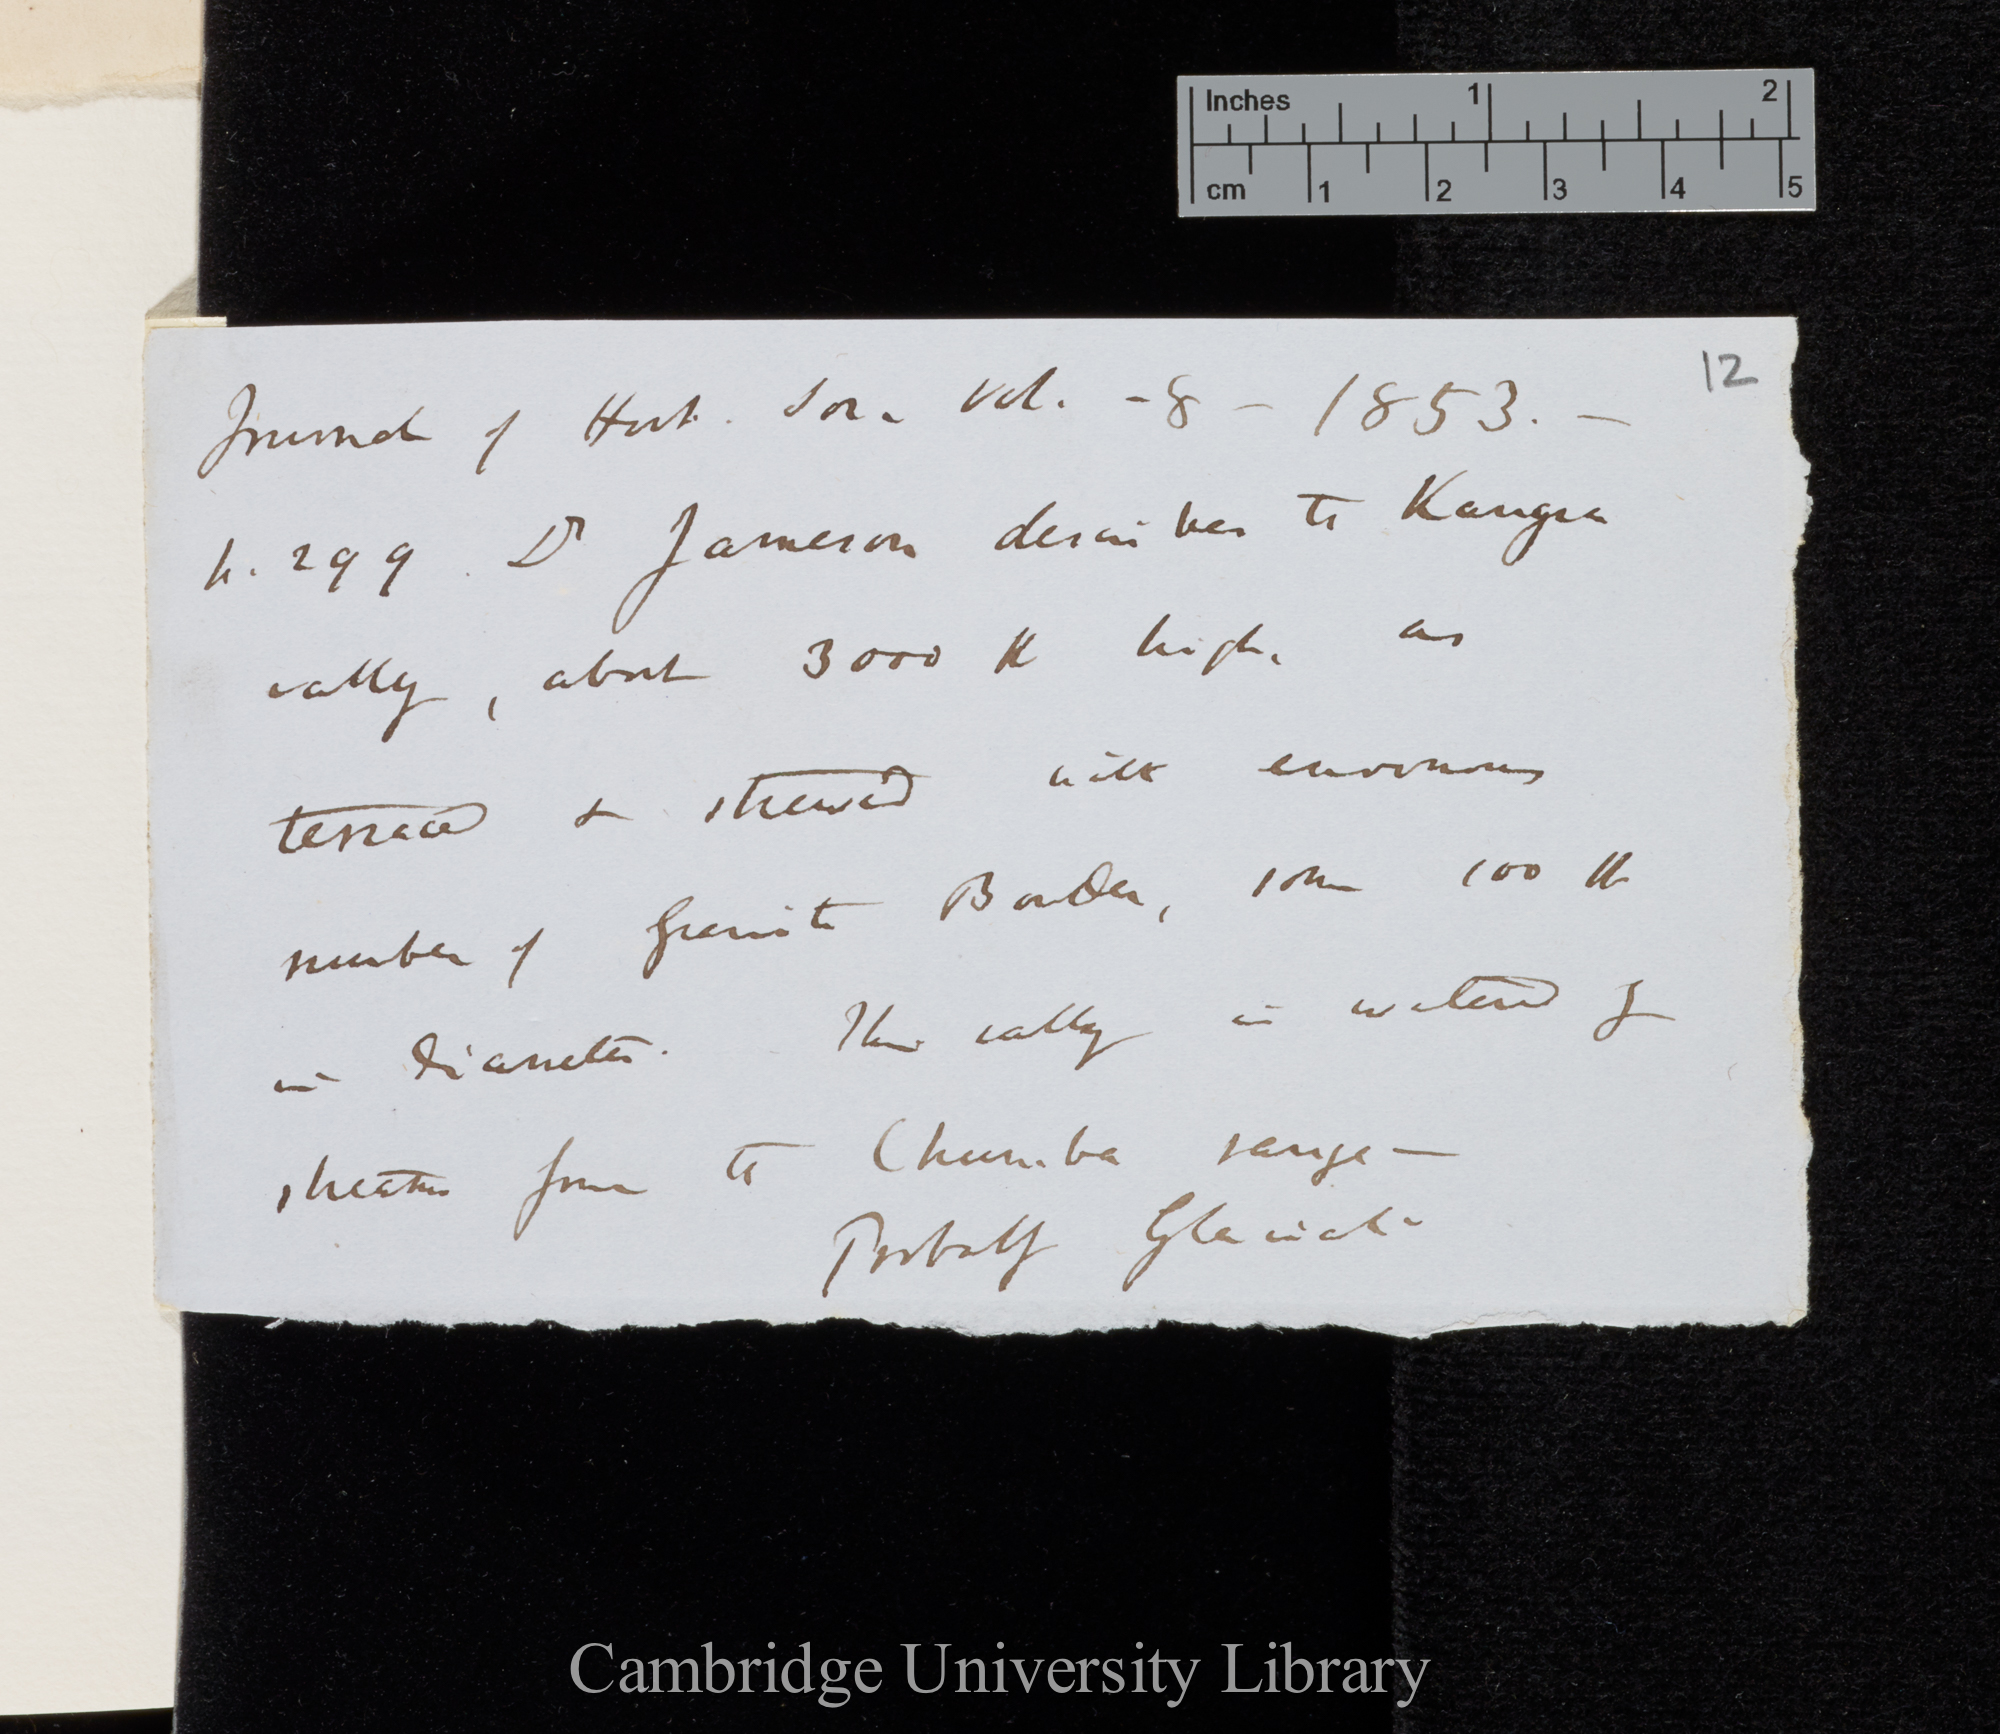 Inches 1 2
cm 1 2 3 4 5
12
Journal of Hort. Soc. Vol. - 8 - 1853. —
p. 299. Dr Jameson describes the Kangra
valley, about 3000 ft high, as
terraced & strewed with enormous
number of Granite Boulders, some 100 ft
in diameter. This valley is watered by
streams from the Chumba range —
Probably Glacial.
Cambridge University Library